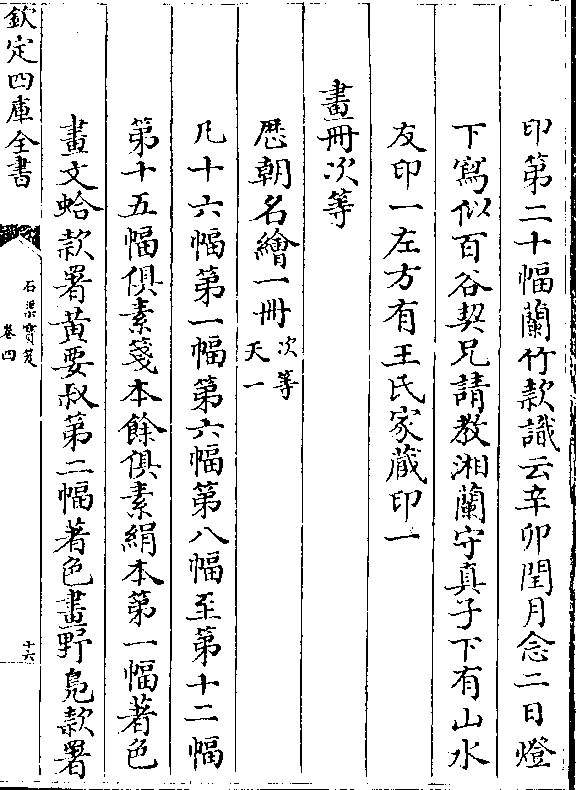 印第二十幅蘭竹款識云辛卯閏月念二日燈
下寫似百谷契兄請教湘蘭守真子下有山水
友印一左方有王氏家蔵印一
畫冊次等
歴朝名繪一冊次等天一
凡十六幅第一幅第六幅第八幅至第十二幅
第十五幅俱素箋本餘俱素絹本第一幅著色
畫文蛤款署黄要叔第二幅著色畫野鳬款署
欽定四庫全書
石渠寶笈
卷四
十六